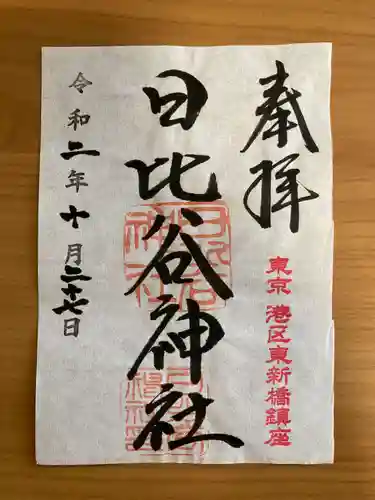 奉拝
東京 港区東新橋鎮座
日比谷神社
令和二年十月二十七日